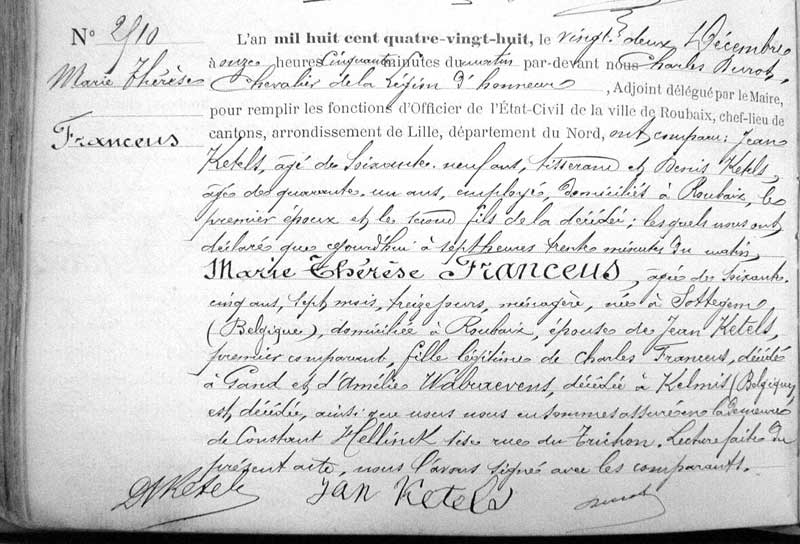 N° 2510
Marie Thérèse
Franceus
L'an mil huit cent quatre-vingt-huit, le vingt-deux Décembre
à onze heures cinquante minutes du matin par-devant nous Charles Durot,
Chevalier de la Légion d'honneur, Adjoint délégué par le Maire,
pour remplir les fonctions d'Officier de l'État-Civil de la ville de Roubaix, chef-lieu de
cantons, arrondissement de Lille, département du Nord, ont comparu: Jean
Ketels, âgé de soixante-neuf ans, tisserand et Denis Ketels,
âgé de quarante-un ans, employé, domiciliés à Roubaix, le
premier époux et le second fils de la décédée; lesquels nous ont
déclaré que cejourd'hui à sept heures trente minutes du matin,
Marie Thérèse Franceus, âgée de soixante-
cinq ans, sept mois, treize jours, ménagère, née à Sottegem
(Belgique), domiciliée à Roubaix, épouse de Jean Ketels,
premier comparant, fille légitime de Charles Franceus, décédé
à Gand et d'Amélie Walraevens, décédée à Kelmis (Belgique,
est décédée, ainsi que nous nous en sommes assuré en la demeure
de Constant Hellinck sise rue du Trichon. Lecture faite du
présent acte, nous l'avons signé avec les comparants.
D Ketels Jan Ketels Durot